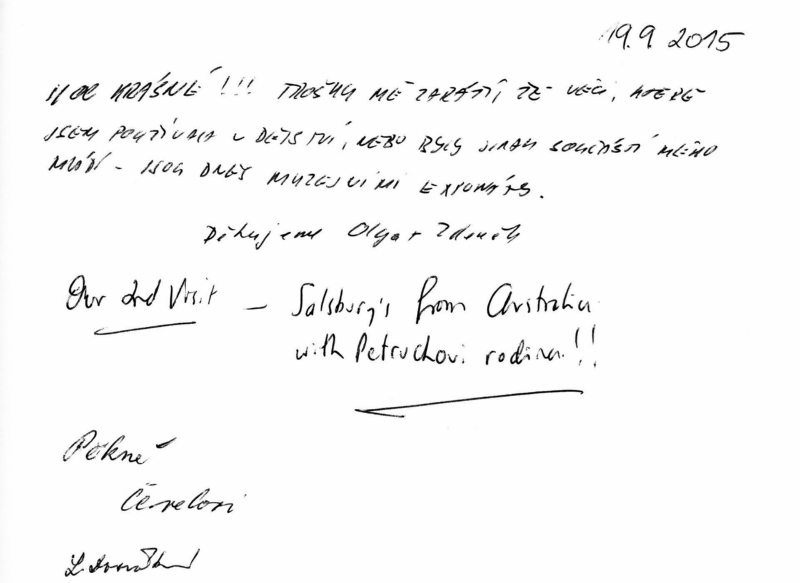 19.9.2015
KRÁSNÉ!!! TROŠKU MĚ ZARÁŽÍ, ŽE VĚCI, KTERÉ
JSEM POUŽÍVALA V DĚTSTVÍ, NEBO BYLY JINAK SOUČÁSTÍ MÉHO
MLÁDÍ - JSOU DNES MUZEJNÍMI EXPONÁTY.
Děkujeme Olga + Zdeněk
Our 2nd Visit - Salsburg's from Australia
with Petruchovi rodina!!
Pěkné